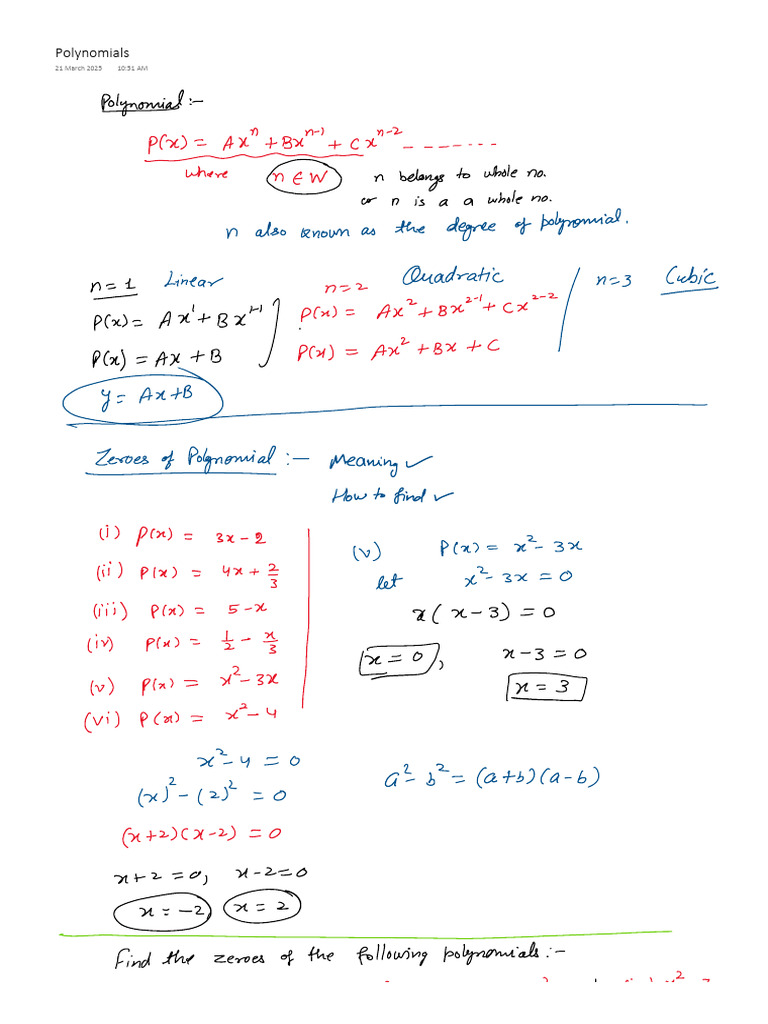 Polynomials
21 March 2025 10:51 AM
Polynomial :-
P(x) = Ax^n + Bx^(n-1) + Cx^(n-2) -------
where n ∈ W n belongs to whole no.
or n is a a whole no.
n also known as the degree of polynomial.
n = 1 Linear
P(x) = Ax^1 + Bx^(1-1)
P(x) = Ax + B
y = Ax + B
n = 2 Quadratic
P(x) = Ax^2 + Bx^(2-1) + Cx^(2-2)
P(x) = Ax^2 + Bx + C
n = 3 Cubic
Zeroes of Polynomial :- Meaning ✓
How to find ✓
(i) P(x) = 3x - 2
(ii) P(x) = 4x + 2/3
(iii) P(x) = 5 - x
(iv) P(x) = 1/2 - x/3
(v) P(x) = x^2 - 3x
(vi) P(x) = x^2 - 4
x^2 - 4 = 0
(x)^2 - (2)^2 = 0
(x+2)(x-2) = 0
x + 2 = 0, x - 2 = 0
x = -2, x = 2
(v) P(x) = x^2 - 3x
let x^2 - 3x = 0
x(x - 3) = 0
x = 0, x - 3 = 0
x = 3
a^2 - b^2 = (a+b)(a-b)
Find the zeroes of the following polynomials :-